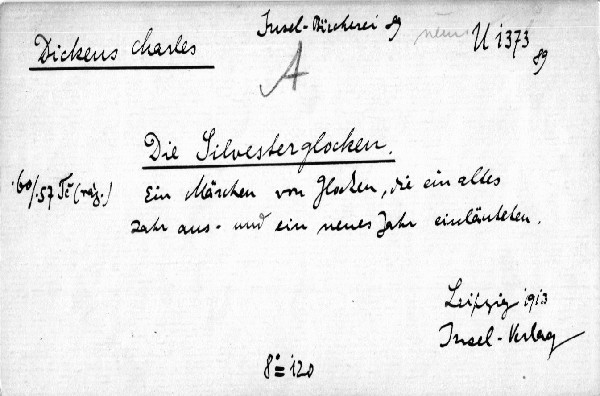 Insel-Bücherei 89
U 1373
89
Dickens Charles
A
Die Silvesterglocken.
Ein Märchen von Glocken, die ein altes
Jahr aus- und ein neues Jahr einläuteten.
Leipzig 1913
Insel-Verlag
8° = 120